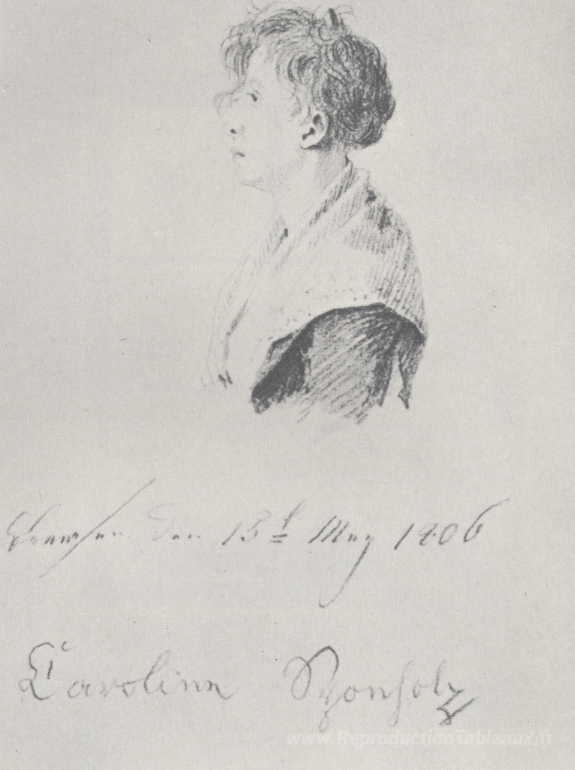 Breesen den May 1806
Caroline Sponholz
www.ReproductionTableaux.fr